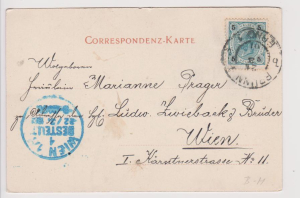 CORRESPONDENZ-KARTE
Wolgeboren
Fräulein Marianne Prager
Ludw. Zwieback & Bruder
Wien
I. Kärntnerstrasse No. 11
WIEN 1/1
BESTELLT